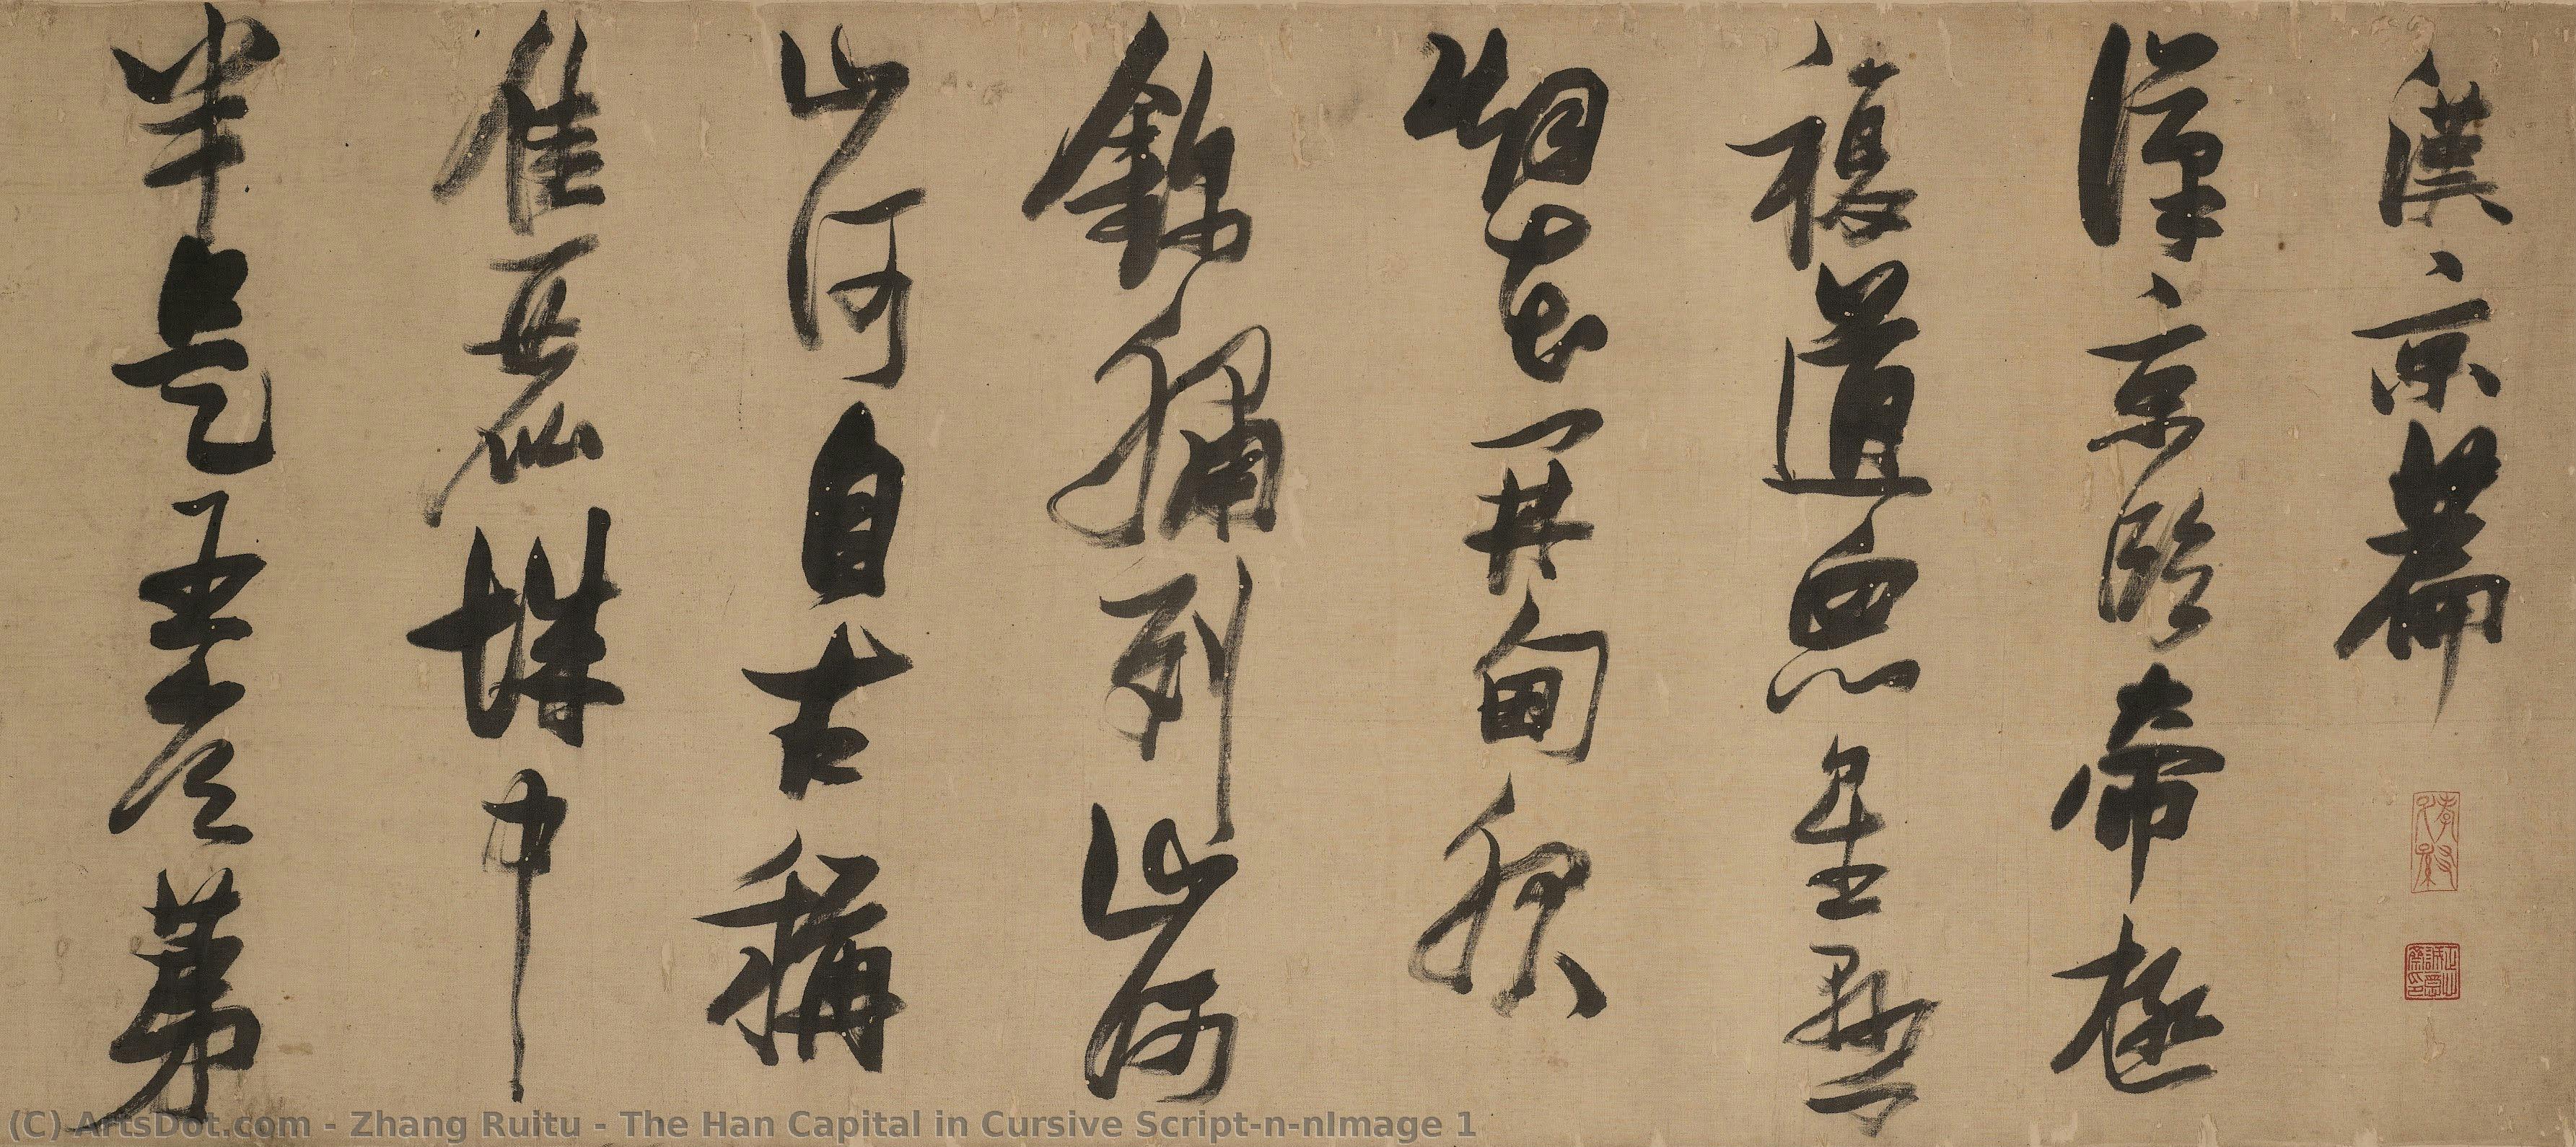 漢京篇
漢京臨帝極
複道星
烟花開甸服
錦繡列山河
山河自古稱
佳麗城中
半是第
(C) ArtsDot.com - Zhang Ruitu - The Han Capital in Cursive Script-n-nImage 1